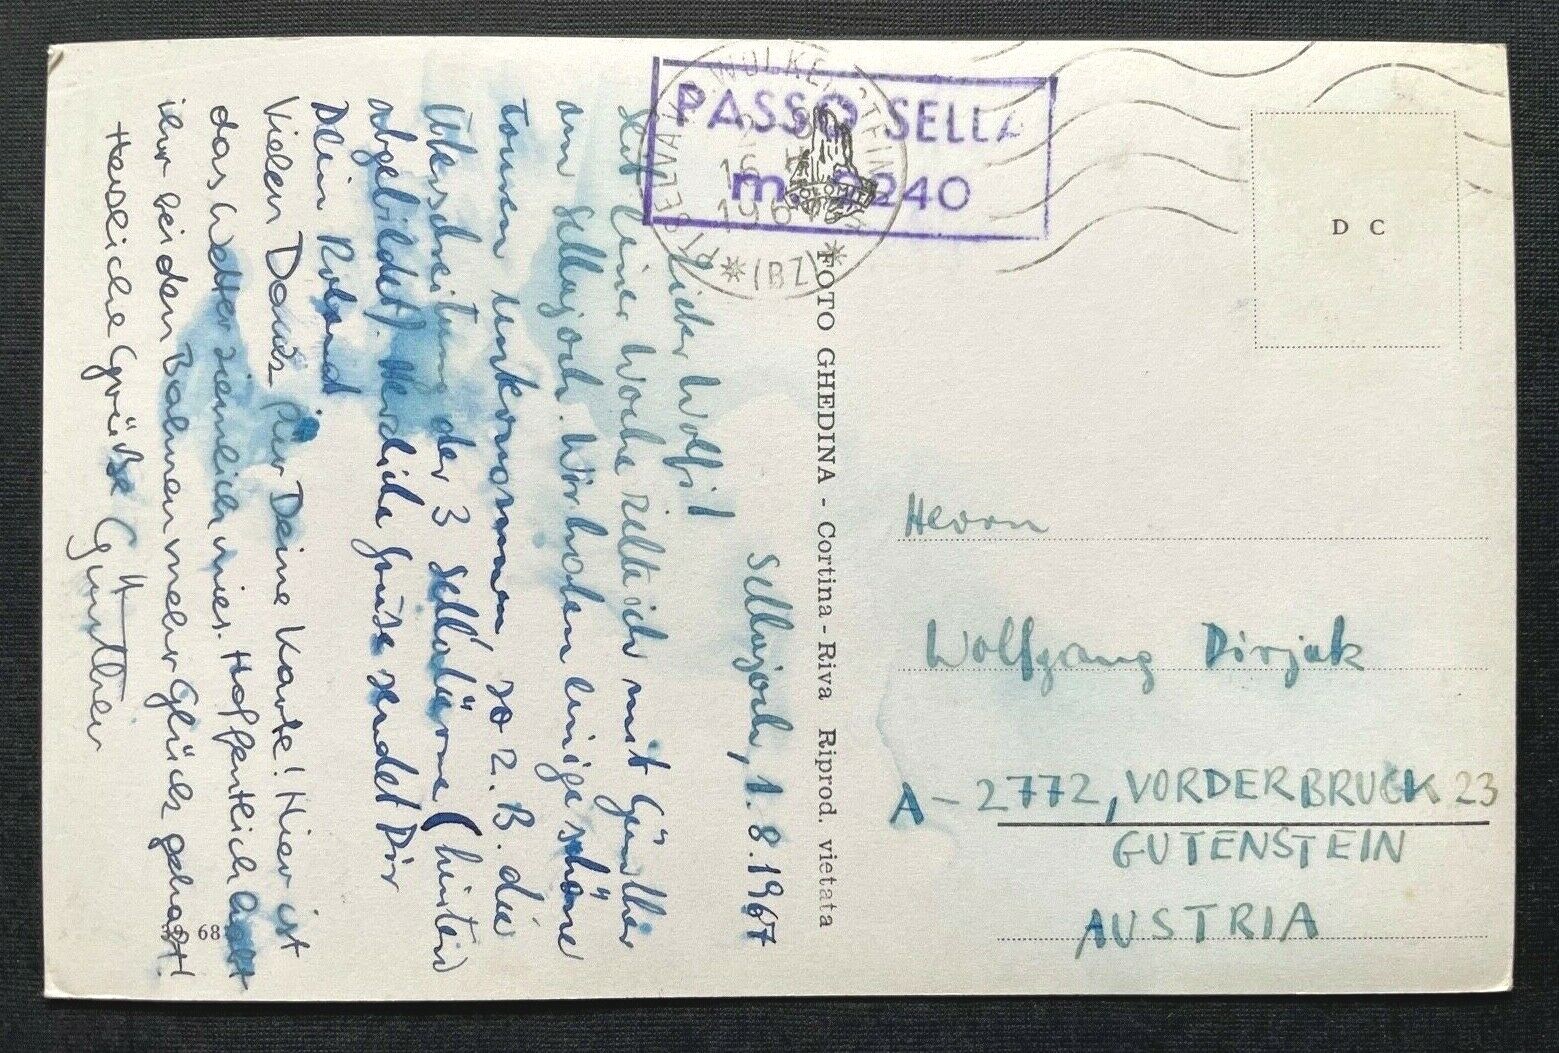 PASSO SELLA
m. 2240
WOLKENSTEIN
SELVA
(BZ)
196
D C
FOTO GHEDINA - Cortina - Riva Riprod. vietata
39 68
Sellajoch, 1.8.1967
Lieber Wolfi!
Seit einer Woche zelte ich mit Günther
am Sellajoch. Wir haben einige schöne
Touren unternommen, so z.B. die
Überschreitung der 3 Sellatürme (hinten
abgebildet). Herzliche Grüße sendet Dir
Dein Roland
Vielen Dank für Deine Karte! Hier ist
das Wetter ziemlich mies. Hoffentlich habt
ihr bei den mehr Glück gehabt!
Herzliche Grüße Günther
Herrn
Wolfgang Dirjak
A-2772, VORDERBRUCK 23
GUTENSTEIN
AUSTRIA